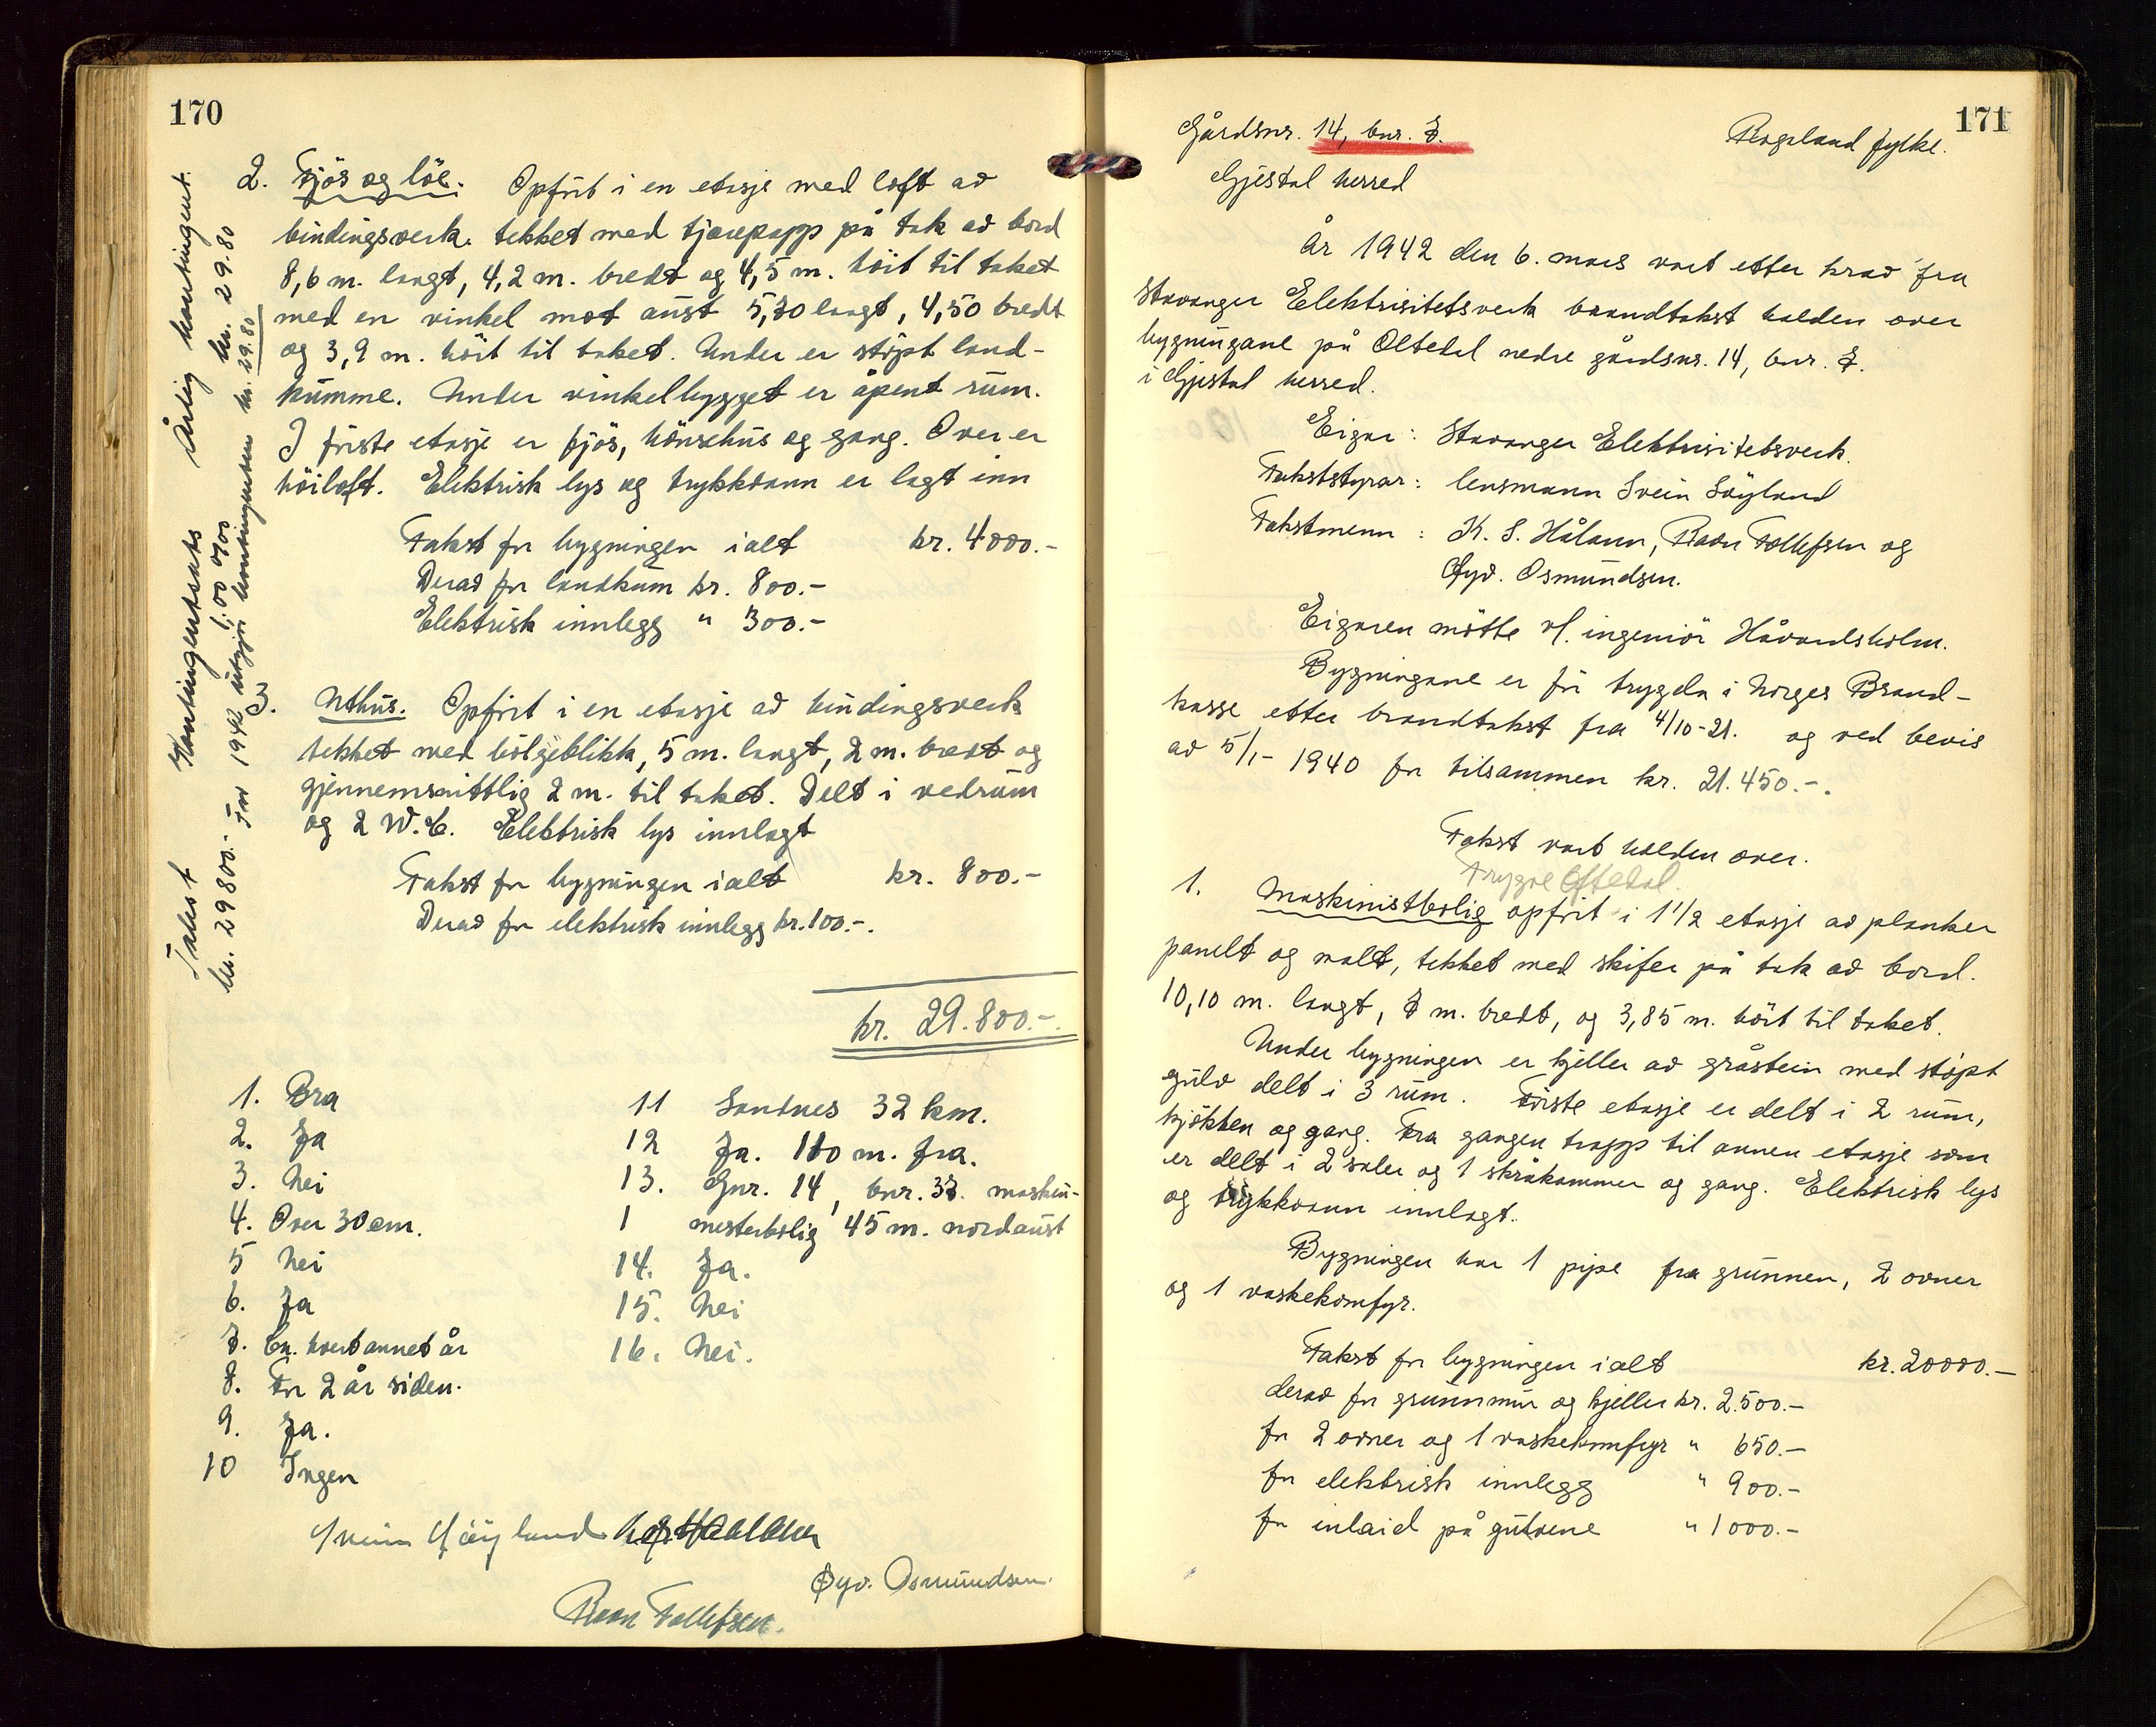 170
Takst Kontingentsats Årlig kontingent.
kr. 29800.- 1,00 0/00 kr. 29.80
For 1942 utgjör kontingenten kr. 29.80
2. Fjös og löe. Opfört i en etasje med loft av
bindingsverk. tekket med tjærepapp på tak av bord
8,6 m. langt, 4,2 m. bredt og 4,5 m. höit til taket
med en vinkel mot aust 5,70 langt, 4,50 bredt
og 3,9 m. höit til taket. Under er stöpt land-
kumme. Under vinkelbygget er åpent rum.
I förste etasje er fjös, hönsehus og gang. Over er
höiloft. Elektrisk lys og trykkvann er lagt inn
Takst for bygningen ialt kr. 4000.-
Derav for landkum kr. 800.-
Elektrisk innlegg " 300.-
3. Uthus. Opfört i en etasje av bindingsverk
tekket med bölgeblikk, 5 m. langt, 2 m. bredt og
gjennemsnittlig 2 m. til taket. Delt i vedrum
og 2 W.C. Elektrisk lys innlagt
Takst for bygningen ialt kr. 800.-
Derav for elektrisk innlegg kr. 100.-.
kr. 29.800.-.
1. Bra
2. Ja
3. Nei
4. Over 30 cm.
5 Nei
6. Ja
7. Ca. hvert annet år
8. For 2 år siden.
9. Ja.
10 Ingen
11 Sandnes 32 km.
12 Ja. 110 m. fra.
13. Gnr. 14, bnr. 37. maskin-
1 mesterbolig 45 m. nordaust
14. Ja.
15. Nei
16. Nei.
Svein Söyland K. S. Haaland
Öyv. Osmundsen.
Ravn Tollefsen.
171
Gårdsnr. 14, bnr. 7. Rogaland fylke.
Gjestal herred
År 1942 den 6. mars vart etter krav fra
Stavanger Elektrisitetsverk branntakst halden over
bygningane på Oltedal nedre gårdsnr. 14, bnr. 7.
i Gjestal herred.
Eigar: Stavanger Elektrisitetsverk.
Takststyrar: lensmann Svein Söyland
Takstmenn: K. S. Håland, Ravn Tollefsen og
Öyv. Osmundsen.
Eigaren mötte v/. ingeniör Håvardsholm.
Bygningane er för trygda i Norges Brand-
kasse etter brandtakst fra 4/10-21. og ved bevis
av 5/1- 1940 for tilsammen kr. 21.450.-.
Takst vart halden over.
Trygve Oftedal.
1. Maskinistbolig opfört i 1 1/2 etasje av planker
panelt og malt, tekket med skifer på tak av bord.
10,10 m. langt, 7 m. bredt, og 3,85 m. höit til taket.
Under bygningen er kjeller av gråstein med stöpt
gulv delt i 3 rum. Förste etasje er delt i 2 rum,
kjökken og gang. Fra gangen trapp til annen etasje som
er delt i 2 saler og 1 skråkammer og gang. Elektrisk lys
og trykkvann innlagt.
Bygningen har 1 pipe fra grunnen, 2 ovner
og 1 vaskekomfyr.
Takst for bygningen ialt kr. 20000.-
derav for grunnmur og kjeller kr. 2.500.-
for 2 ovner og 1 vaskekomfyr " 650.-
for elektrisk innlegg " 900.-
for inlaid på gulvene " 1000.-